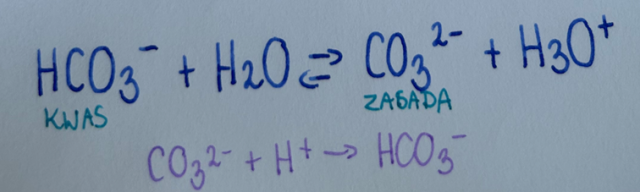 HCO₃⁻ + H₂O ⇌ CO₃²⁻ + H₃O⁺
KWAS ZASADA
CO₃²⁻ + H⁺ → HCO₃⁻